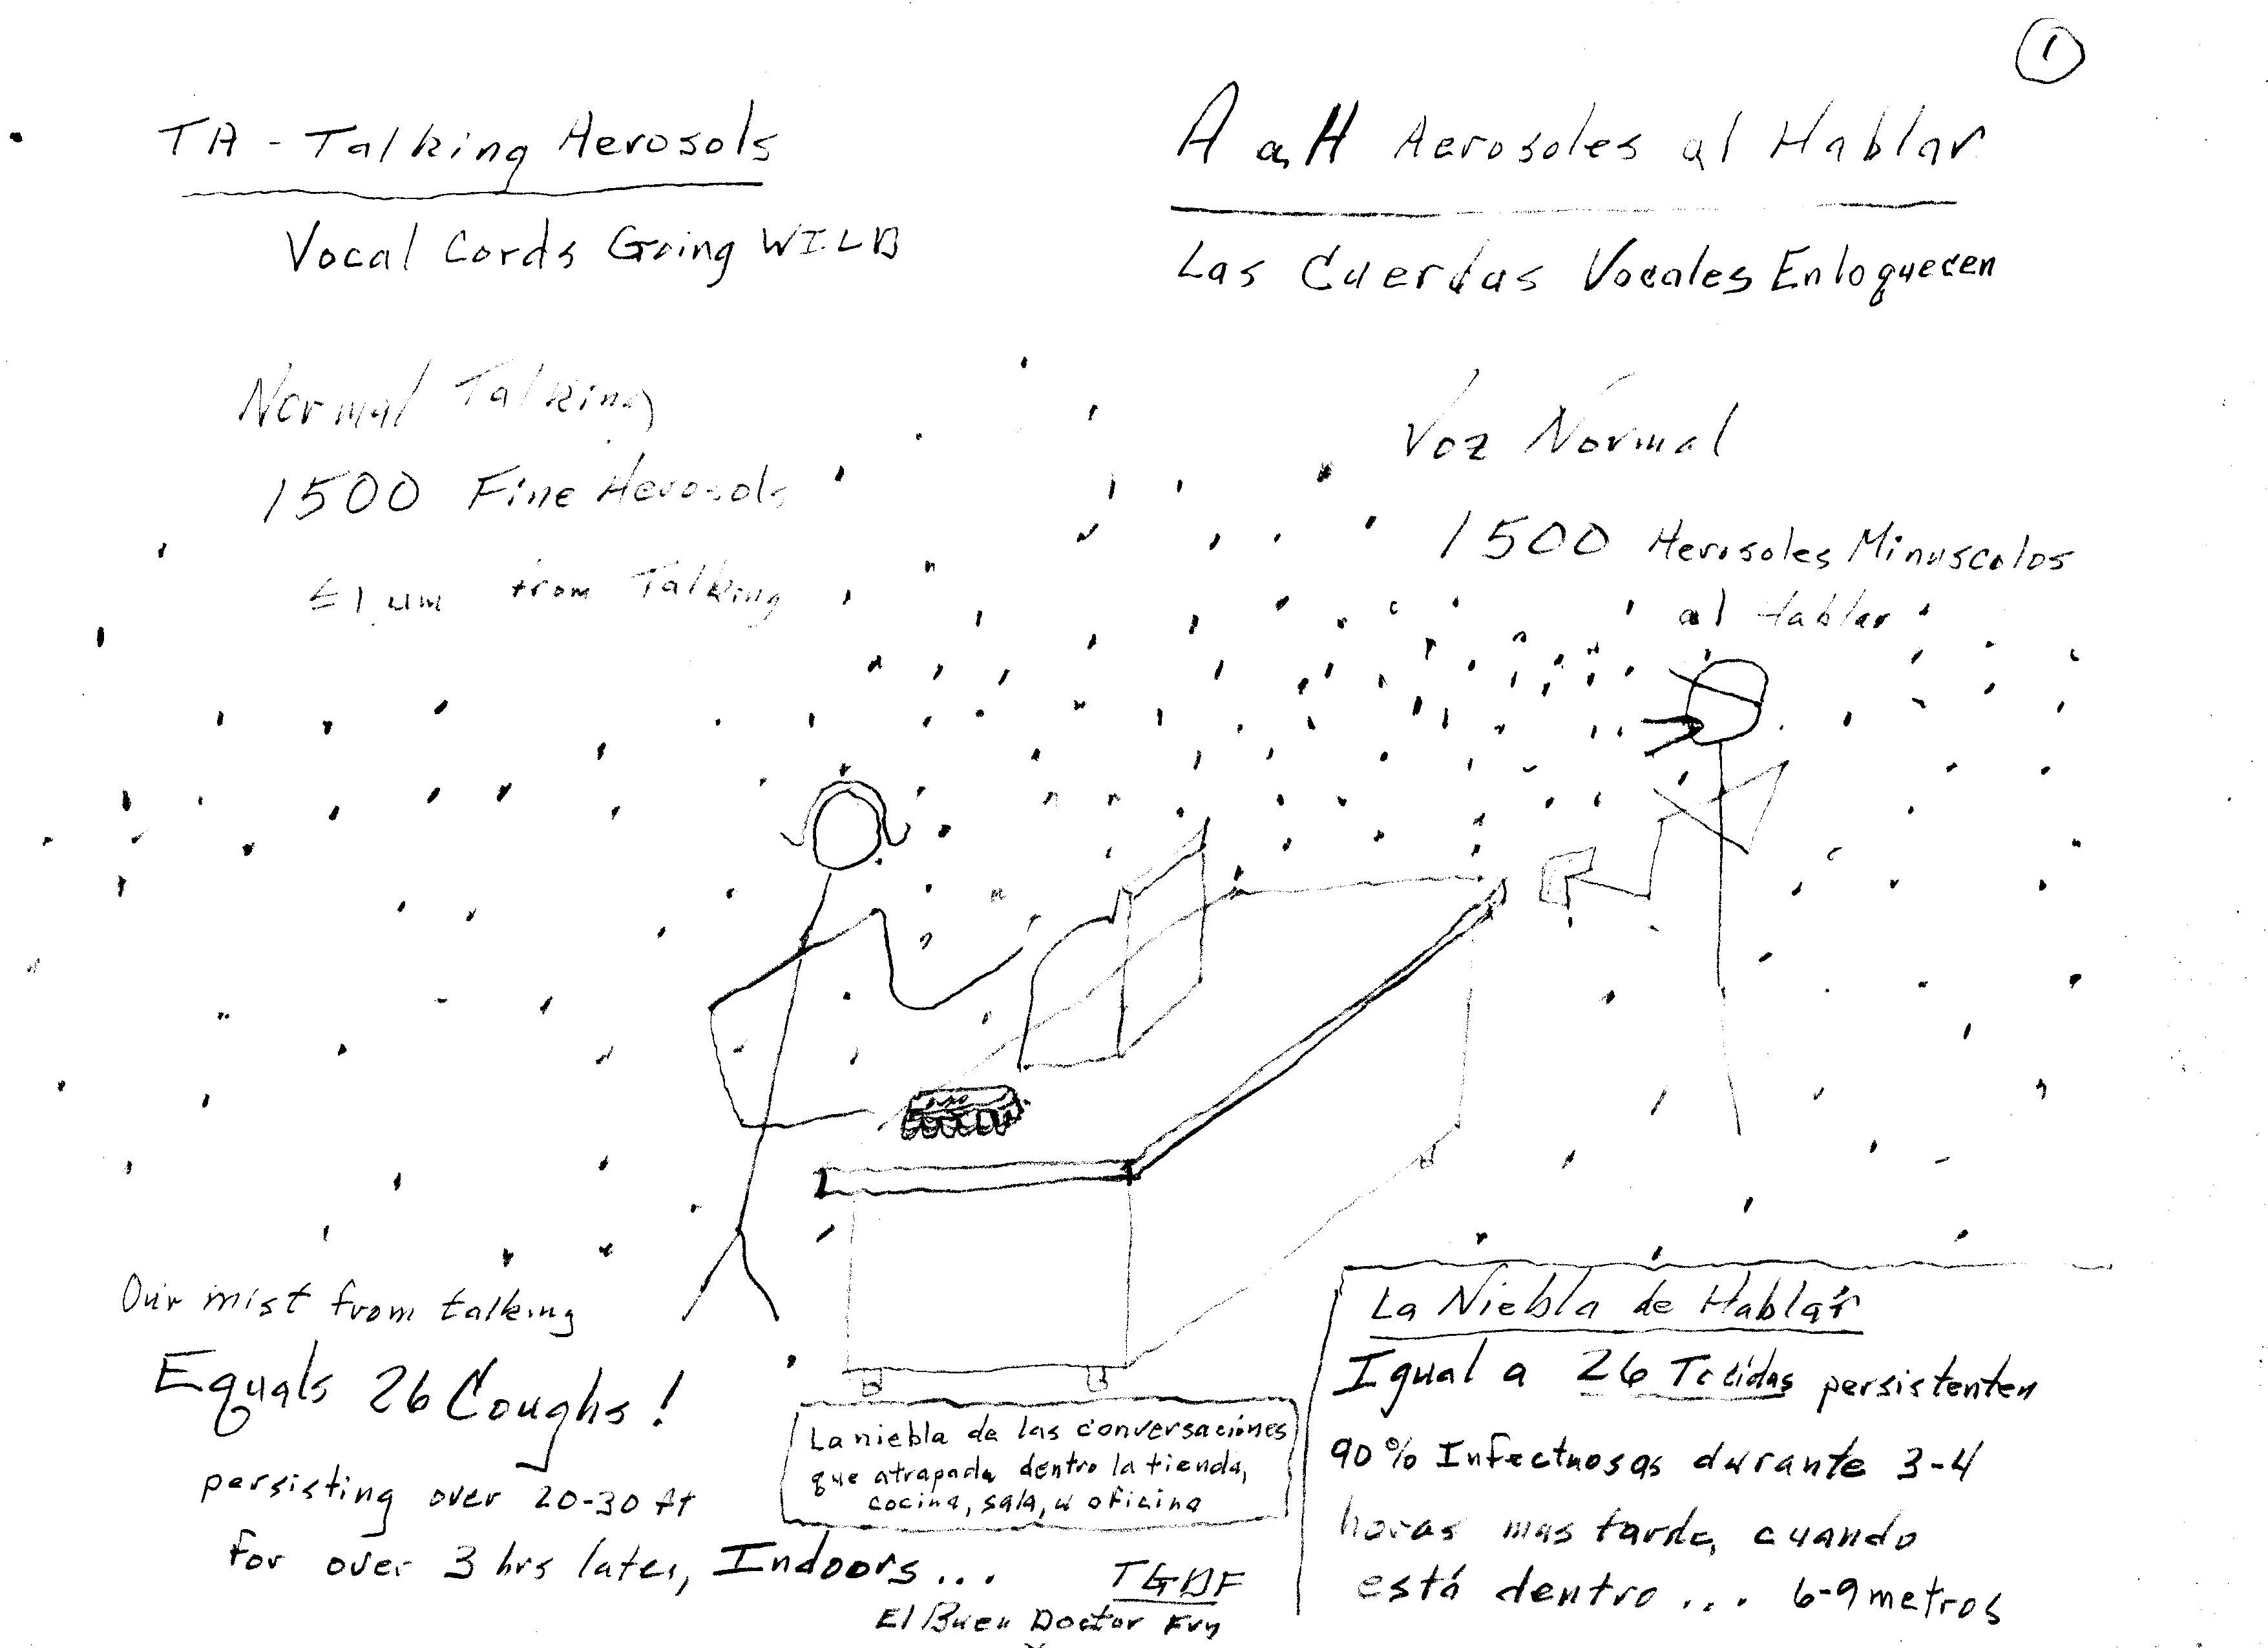 1
TA - Talking Aerosols
Vocal Cords Going WILD
A a H Aerosoles al Hablar
Las Cuerdas Vocales Enloquecen
Normal Talking
1500 Fine Aerosols
≤1 um from Talking
Voz Normal
1500 Aerosoles Minuscolos
al Hablar
Our mist from talking
Equals 26 Coughs!
persisting over 20-30 ft
for over 3 hrs later, Indoors...
La niebla de las conversaciónes
que atrapada dentro la tienda,
cocina, sala, u oficina
TGDF
El Buen Doctor Fry
La Niebla de Hablar
Igual a 26 persistenten
90% Infectuosas durante 3-4
horas mas tarde, cuando
está dentro... 6-9 metros